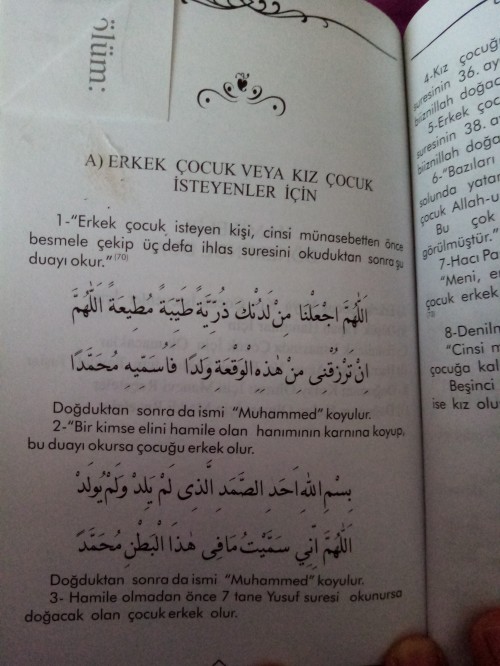 ölüm:
A) ERKEK ÇOCUK VEYA KIZ ÇOCUK
İSTEYENLER İÇİN
1-“Erkek çocuk isteyen kişi, cinsi münasebetten önce
besmele çekip üç defa ihlas suresini okuduktan sonra şu
duayı okur.”(70)
اَللّٰهُمَّ اجْعَلْنَا مِنْ لَدُنْكَ ذُرِّيَّةً طَيِّبَةً مُطِيعَةً اَللّٰهُمَّ
اِنْ تَرْزُقْنِى مِنْ هٰذِهِ الْوَقْعَةِ وَلَدًا فَاُسَمِّيهِ مُحَمَّدًا
Doğduktan sonra da ismi “Muhammed” koyulur.
2-“Bir kimse elini hamile olan hanımının karnına koyup,
bu duayı okursa çocuğu erkek olur.
بِسْمِ اللّٰهِ اَحَدِ الصَّمَدِ الَّذِى لَمْ يَلِدْ وَلَمْ يُولَدْ
اَللّٰهُمَّ اِنِّى سَمَّيْتُ مَا فِى هٰذَا الْبَطْنِ مُحَمَّدًا
Doğduktan sonra da ismi “Muhammed” koyulur.
3- Hamile olmadan önce 7 tane Yusuf suresi okunursa
doğacak olan çocuk erkek olur.
4-Kız çocuğu
suresinin 36. ay
biiznillah doğac
5-Erkek çoc
suresinin 38. ay
biiznillah doğa
6-“Bazıları
solunda yatar
çocuk Allah-u
Bu çok
görülmüştür.”
7-Hacı Pa
“Meni, e
çocuk erkek
8-Denilm
“Cinsi m
çocuğa kal
Beşinci
ise kız olu